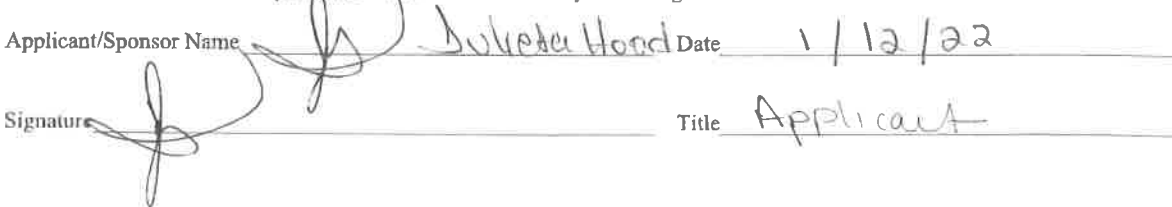 Applicant/Sponsor Name Hood Date 1/12/22
Signature Title Applicant